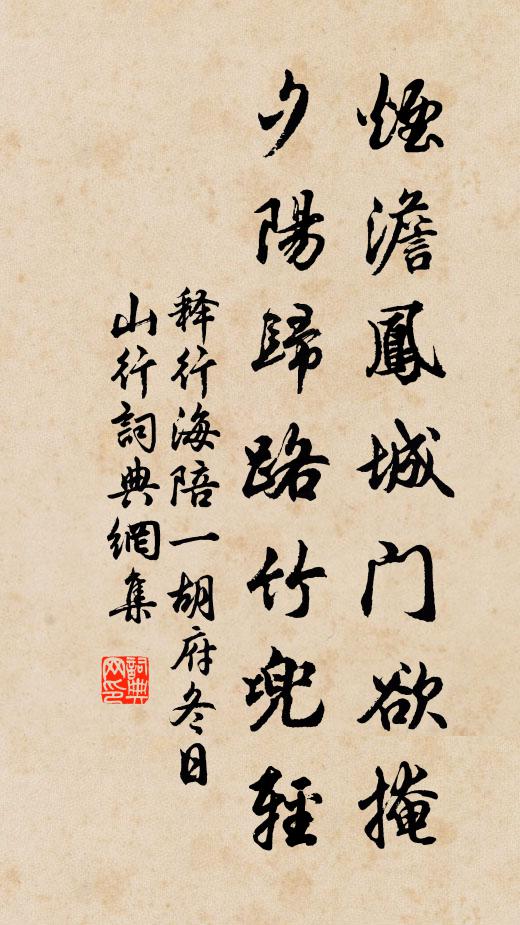 煙澹鳳城门欲掩
夕陽歸路竹兜輕
释行海陪一胡府冬日
山行詞典網集
詞典
网印